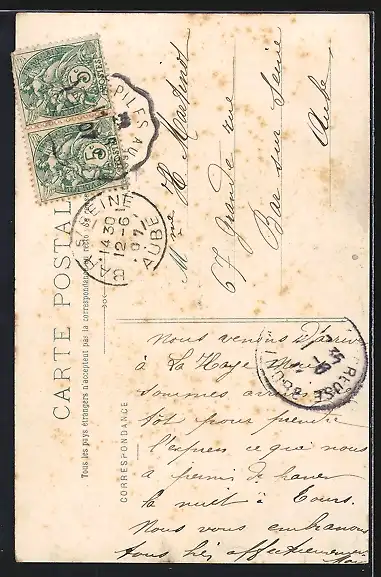 CARTE POSTALE
Tous les pays étrangers n'acceptent pas la correspondance au recto
CORRESPONDANCE
5c
5c
PILES AU
S/SEINE
14 30
12-6
07
AUBE
Mme R Martinot
67 Grande rue
Bar sur Seine
Aube
Nous venons d'arriver
à La Haye
sommes
tôt pour prendre
l'express ce qui nous
a permis de
la nuit à Tours.
Nous vous embrassons
tous bien affectueusement